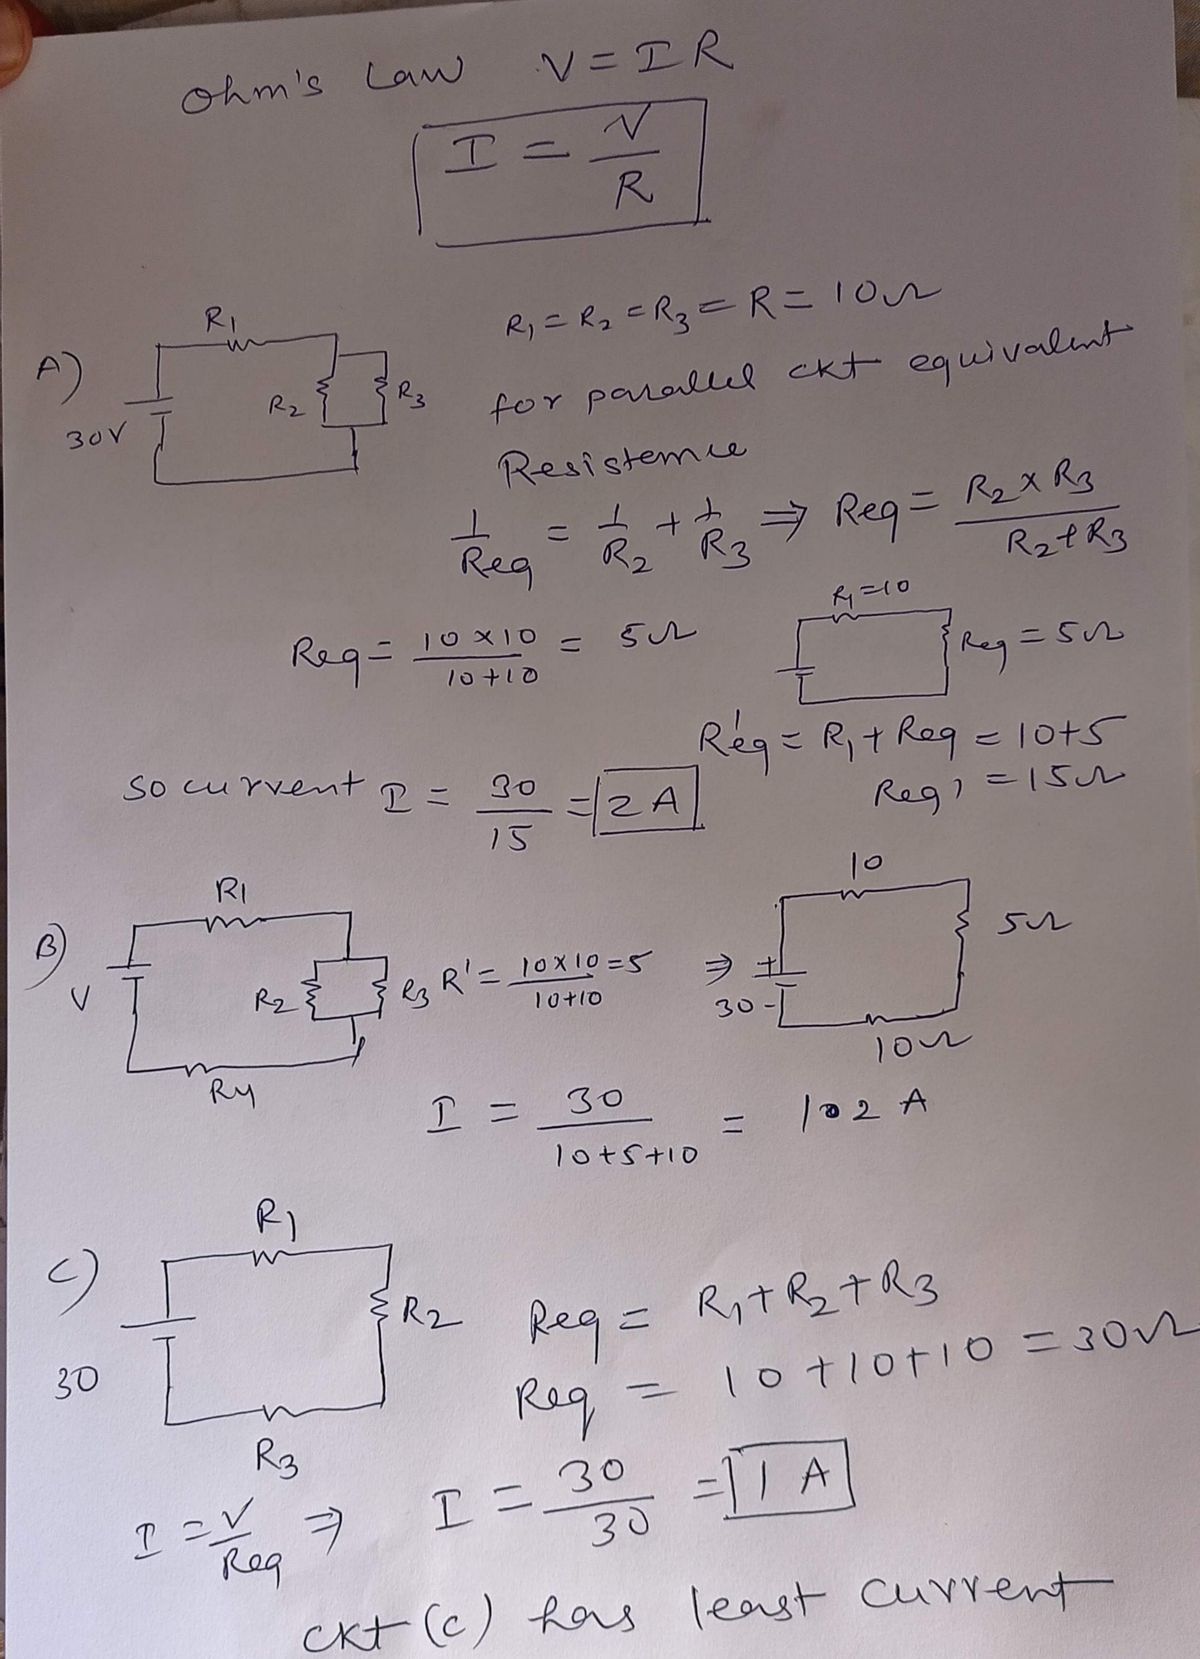 Ohm's Law V = IR
I = V/R
A)
R1
R2
R3
30V
R1 = R2 = R3 = R = 10Ω
for parallel ckt equivalent
Resistemce
1/Req = 1/R2 + 1/R3 ⇒ Req = R2 × R3 / R2 + R3
Req = 10 × 10 / 10 + 10 = 5Ω
R1 = 10
Req = 5Ω
R'eq = R1 + Req = 10 + 5
Req' = 15Ω
so current I = 30/15 = 2 A
B)
V
R1
R2
R3
R4
R' = 10 × 10 / 10 + 10 = 5 ⇒
10
5Ω
+
30 -
10Ω
I = 30 / 10 + 5 + 10 = 1.2 A
C)
30
R1
R2
R3
Req = R1 + R2 + R3
Req = 10 + 10 + 10 = 30Ω
I = V/Req ⇒ I = 30/30 = 1 A
ckt (c) has least current